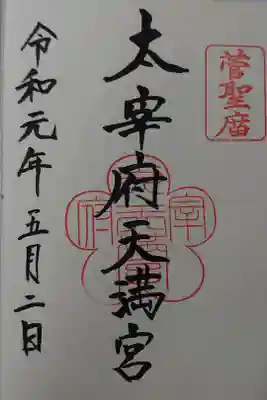 菅聖庿
太宰府天満宮
令和元年五月二日